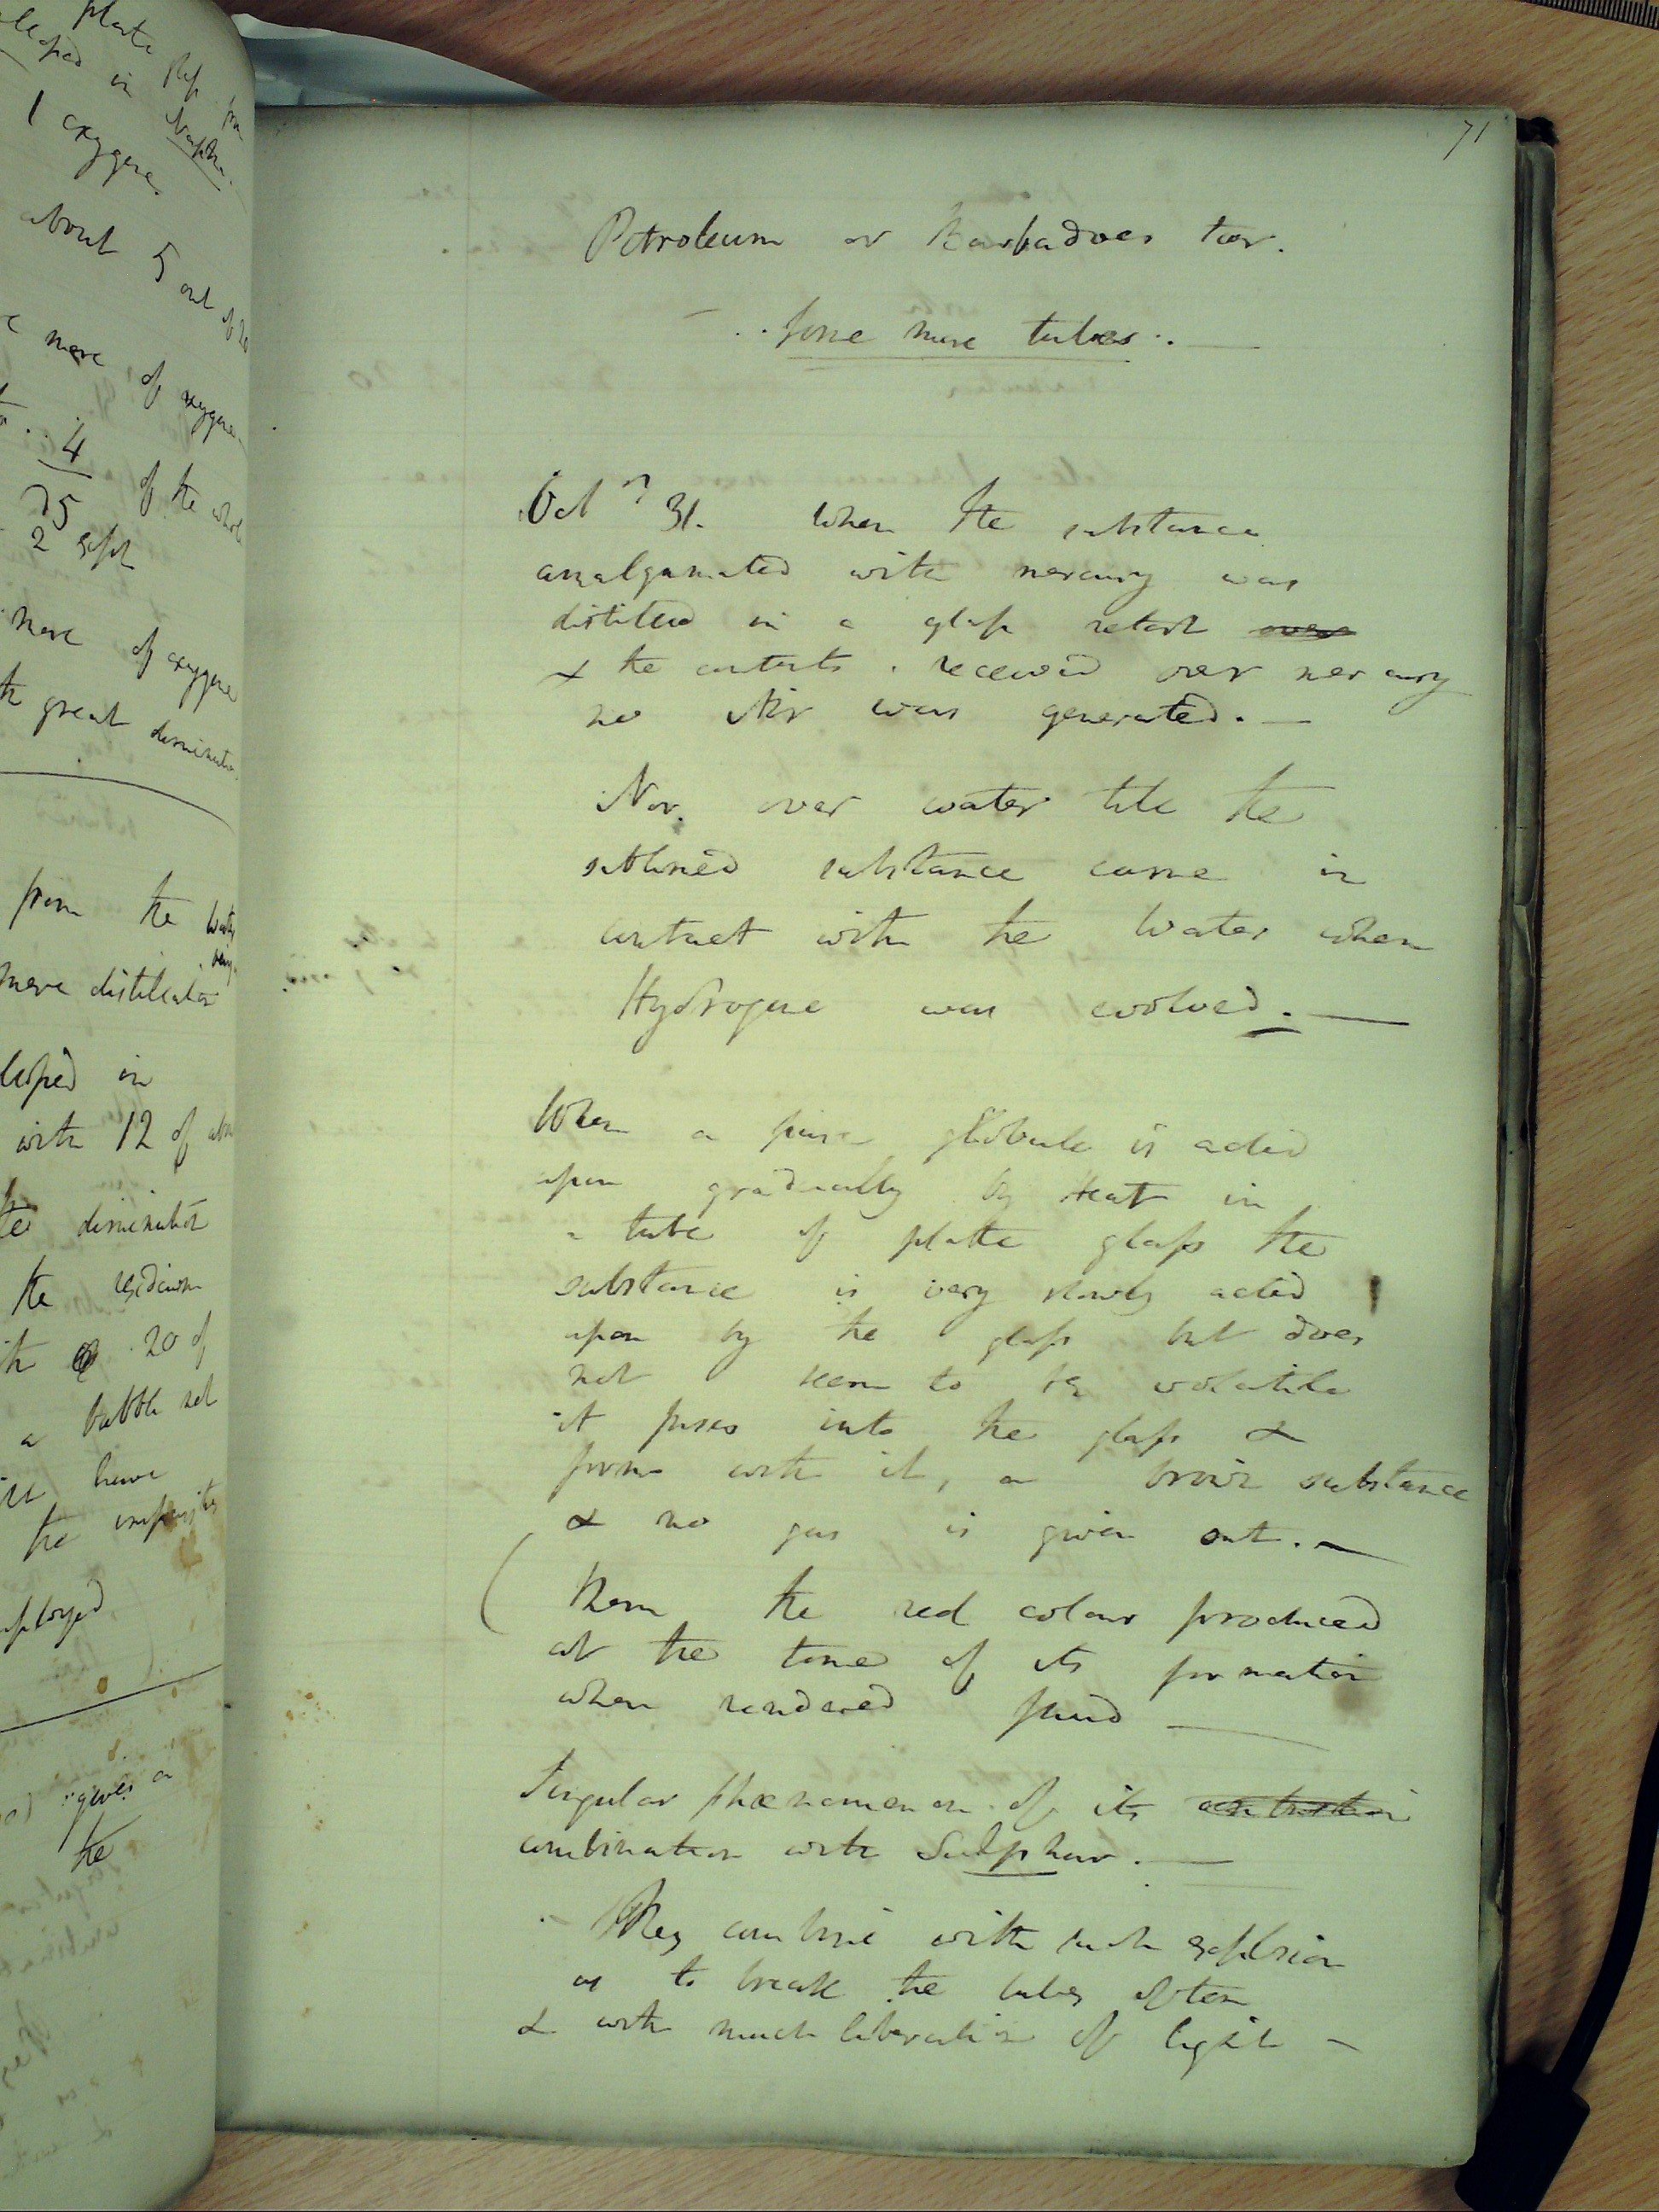 plate
in Naptha.
1 oxygene
about 5 out of 20
more of oxygene
4 of the whole
75
2 Sept
more of oxygene
great diminution
from the
mere distillation
in
with 12 of
diminution
the residuum
20 of
a bubble not
have
the impurities
gives a
the
71
Petroleum or Barbadoes tar.
Some more tubes.
Octr 31. When the substance
amalgamated with mercury was
distilled in a glass retort over
& the contents received over mercury
no Air was generated. —
Nor. over water till the
sublimed substance came in
contact with the Water when
Hydrogene was evolved. —
When a pure globule is acted
upon gradually by Heat in
a tube of platte glass the
substance is very slowly acted
upon by the glass but does
not seem to be volatile
it passes into the glass &
forms with it, a brown substance
& no gas is given out. —
( the red colour produced
at the time of its formation
when rendered fluid —
Singular phænomenon of its
combination with Sulphur. —
They combine with such explosion
as to break the tubes often
& with much liberation of light —